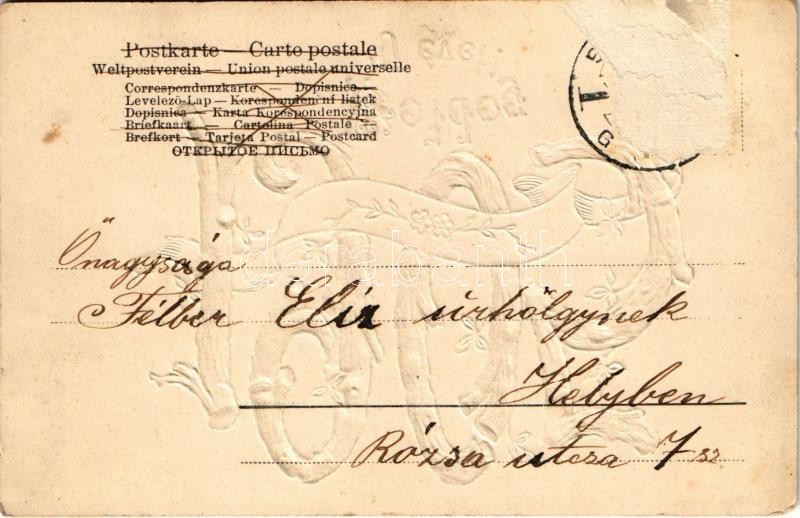 Postkarte — Carte postale
Weltpostverein — Union postale universelle
Correspondenzkarte — Dopisnice
Levelező-Lap — Korespondenční listek
Dopisnica — Karta Korespondencyjna
Briefkaart — Cartolina Postale —
Brefkort — Tarjeta Postal — Postcard
ОТКРЫТОЕ ПИСЬМО
Őnagysága
Félber Eliz úrhölgynek
Helyben
Rózsa utcza 7 sz
darabanth